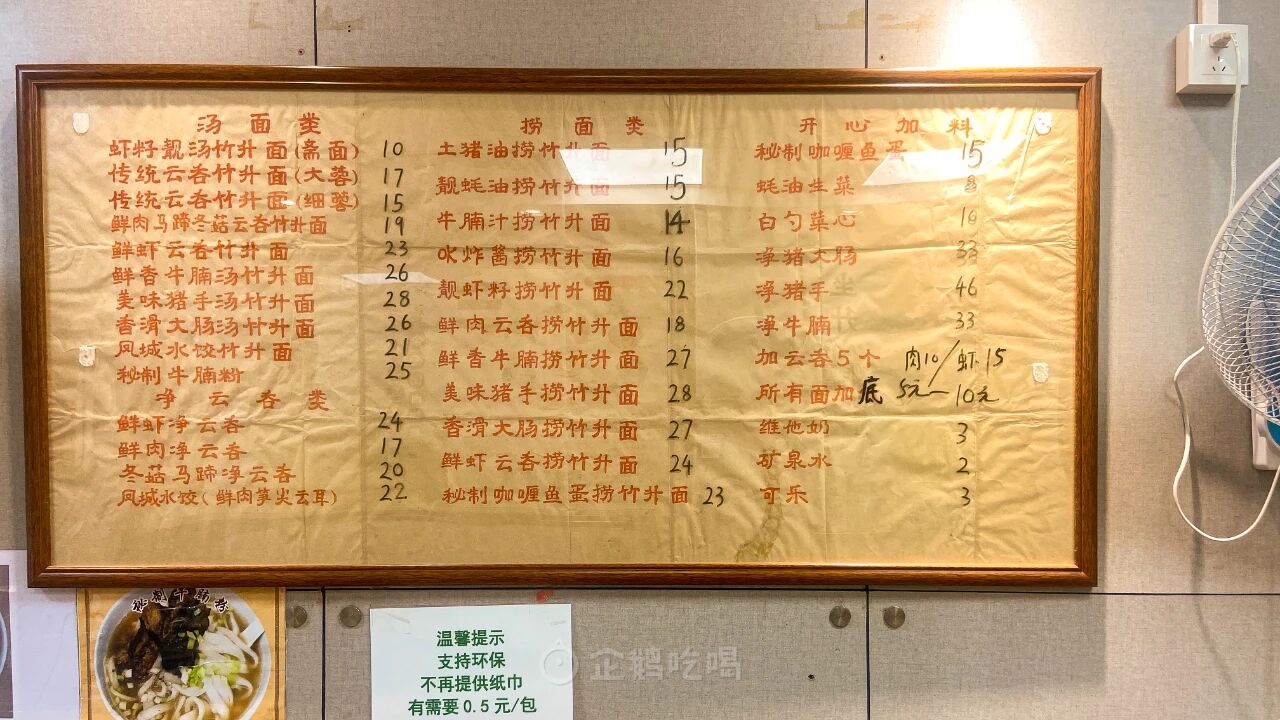 汤面类
虾籽靓汤竹升面(斋面) 10
传统云吞竹升面(大蓉) 17
传统云吞竹升面(细蓉) 15
鲜肉马蹄冬菇云吞竹升面 19
鲜虾云吞竹升面 23
鲜香牛腩汤竹升面 26
美味猪手汤竹升面 28
香滑大肠汤竹升面 26
凤城水饺竹升面 21
秘制牛腩粉 25
净云吞类
鲜虾净云吞 24
鲜肉净云吞 17
冬菇马蹄净云吞 20
凤城水饺(鲜肉笋尖云耳) 22
捞面类
土猪油捞竹升面 15
靓蚝油捞竹升面 15
牛腩汁捞竹升面 14
炸酱捞竹升面 16
靓虾籽捞竹升面 22
鲜肉云吞捞竹升面 18
鲜香牛腩捞竹升面 27
美味猪手捞竹升面 28
香滑大肠捞竹升面 27
鲜虾云吞捞竹升面 24
秘制咖喱鱼蛋捞竹升面 23
开心加料
秘制咖喱鱼蛋 15
蚝油生菜 8
白勺菜心 10
净猪大肠 33
净猪手 46
净牛腩 33
加云吞5个 肉10/虾15
所有面加底 5元—10元
维他奶 3
矿泉水 2
可乐 3
秘制牛腩粉
温馨提示
支持环保
不再提供纸巾
有需要0.5元/包
企鹅吃喝